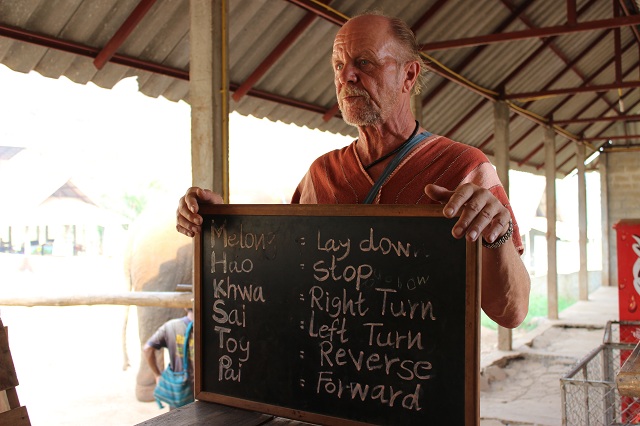 Melon : Lay down
Hao : Stop
Khwa : Right Turn
Sai : Left Turn
Toy : Reverse
Pai : Forward